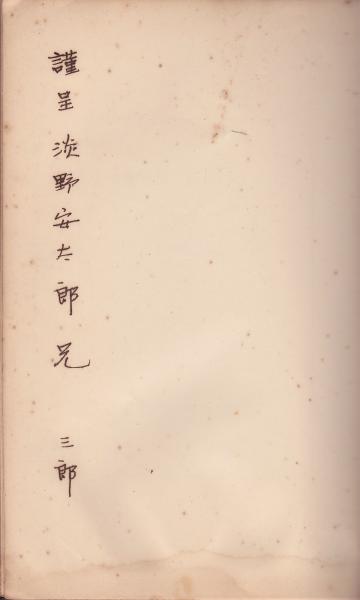 謹呈淡野安太郎兄 三郎